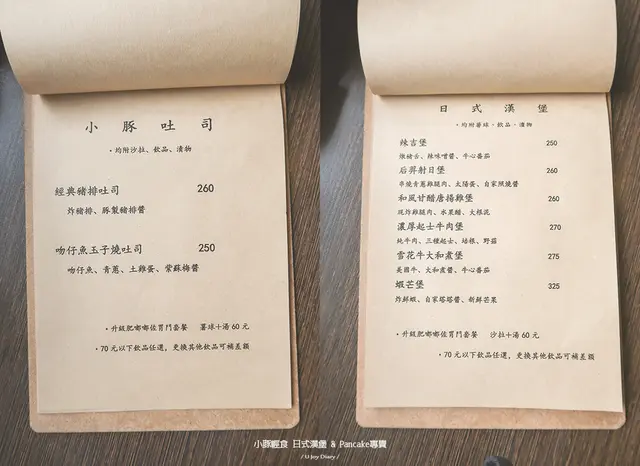 小豚吐司
・均附沙拉、飲品、漬物
經典豬排吐司 260
炸豬排、豚製豬排醬
吻仔魚玉子燒吐司 250
吻仔魚、青蔥、土雞蛋、紫蘇梅醬
・升級肥嘟嘟佐胃鬥套餐 薯球+湯60元
・70元以下飲品任選，更換其他飲品可補差額
日式漢堡
・均附薯球、飲品、漬物
辣吉堡 250
燉豬舌、辣味噌醬、牛心番茄
后羿射日堡 260
串燒青蔥雞腿肉、太陽蛋、自家照燒醬
和風甘醋唐揚雞堡 260
現炸雞腿肉、水果醋、大根泥
濃厚起士牛肉堡 270
純牛肉、三種起士、培根、野菇
雪花牛大和煮堡 275
美國牛、大和煮醬、牛心番茄
蝦芒堡 325
炸鮮蝦、自家塔塔醬、新鮮芒果
・升級肥嘟嘟佐胃鬥套餐 沙拉+湯60元
・70元以下飲品任選，更換其他飲品可補差額
小豚輕食 日式漢堡 & Pancake專賣
/ U Joy Diary /